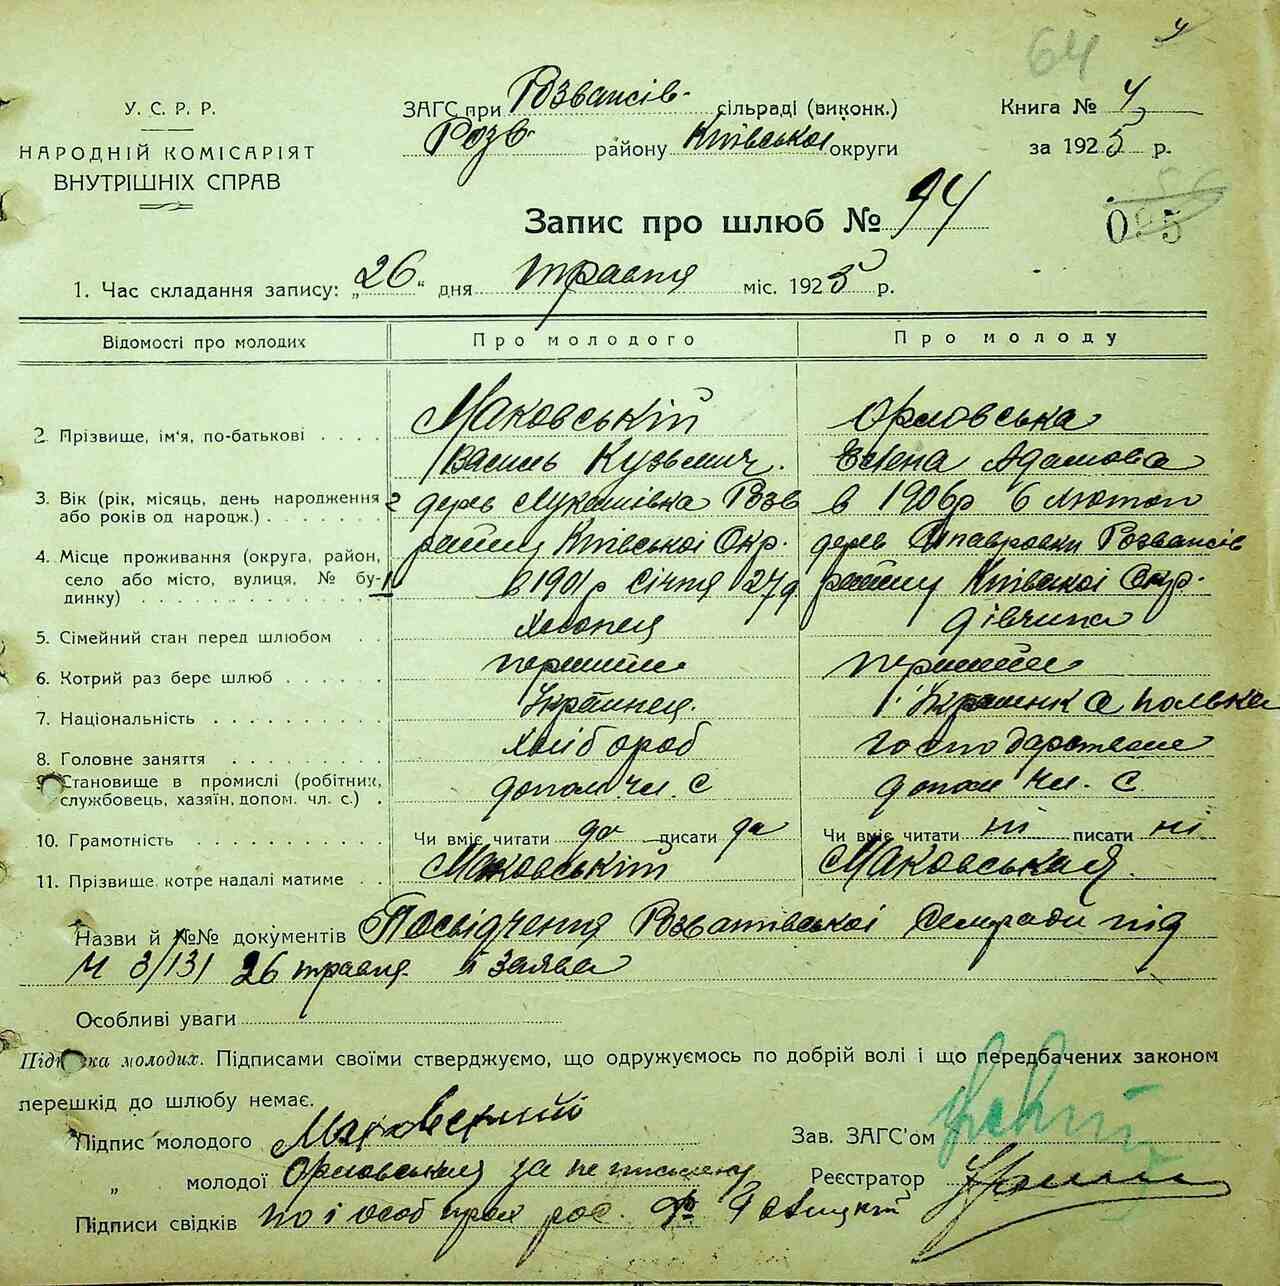 64
У. С. Р. Р.
НАРОДНІЙ КОМІСАРІЯТ
ВНУТРІШНІХ СПРАВ
ЗАГС при Розважів- сільраді (виконк.)
Розв- району Київської округи
Книга № 4
за 1925 р.
Запис про шлюб № 94
1. Час складання запису: „26“ дня травня міс. 1925 р.
Відомості про молодих Про молодого Про молоду
2 Прізвище, ім'я, по-батькові . . . . Маковський Орловська
Василь Кузьмич. Єлена Адамова
3. Вік (рік, місяць, день народження або років од народж.) . . . . . . . 2 дерев Лукашівка Розв в 1906р 6 лютого
4. Місце проживання (округа, район, село або місто, вулиця, № будинку) . . . . . . . . . . . . району Київської Окр. дерев Розважів
1 в 1901р січня 27д району Київської Окр.
5. Сімейний стан перед шлюбом . . хлопец дівчина
6. Котрий раз бере шлюб . . . . . . перший перший
7. Національність . . . . . . . . . . Українец. Українка Полька
8. Головне заняття . . . . . . . . . хлібороб
9. Становище в промислі (робітник, службовець, хазяїн, допом. чл. с.) . допом чл. с допом чл. с
10. Грамотність . . . . . . . . . . . Чи вміє читати да писати да Чи вміє читати ні писати ні
11. Прізвище, котре надалі матиме . . Маковський Маковськая.
Назви й №№ документів Посвідчення Розважівської Сельради під
Ч 3/131 26 травня і заява
Особливі уваги
Підписка молодих. Підписами своїми стверджуємо, що одружуємось по добрій волі і що передбачених законом
перешкід до шлюбу немає.
Підпис молодого Маковский
Зав. ЗАГС'ом
„ молодої Орловськая за неписьмену
Реєстратор
Підписи свідків по і особ прох рос.